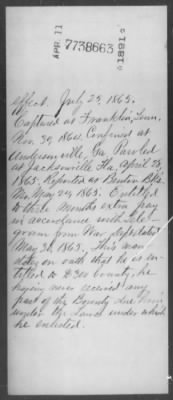 APR. 11
7738663
1891
effect. July 29, 1865.
Captured at Franklin, Tenn.
Nov. 30, 1864. Confined at
Andersonville, Ga. Paroled
at Jacksonville Fla. April 28,
1865. Reported at Benton Bks.
Mo. May 29, 1865. Entitled
to three months extra pay
in accordance with tele-
gram from War dept. dated
May 30, 1865. This man
states on oath that he is en-
titled to $300 bounty, he
having never received any
part of the Bounty due him
under the Laws under which
he enlisted.